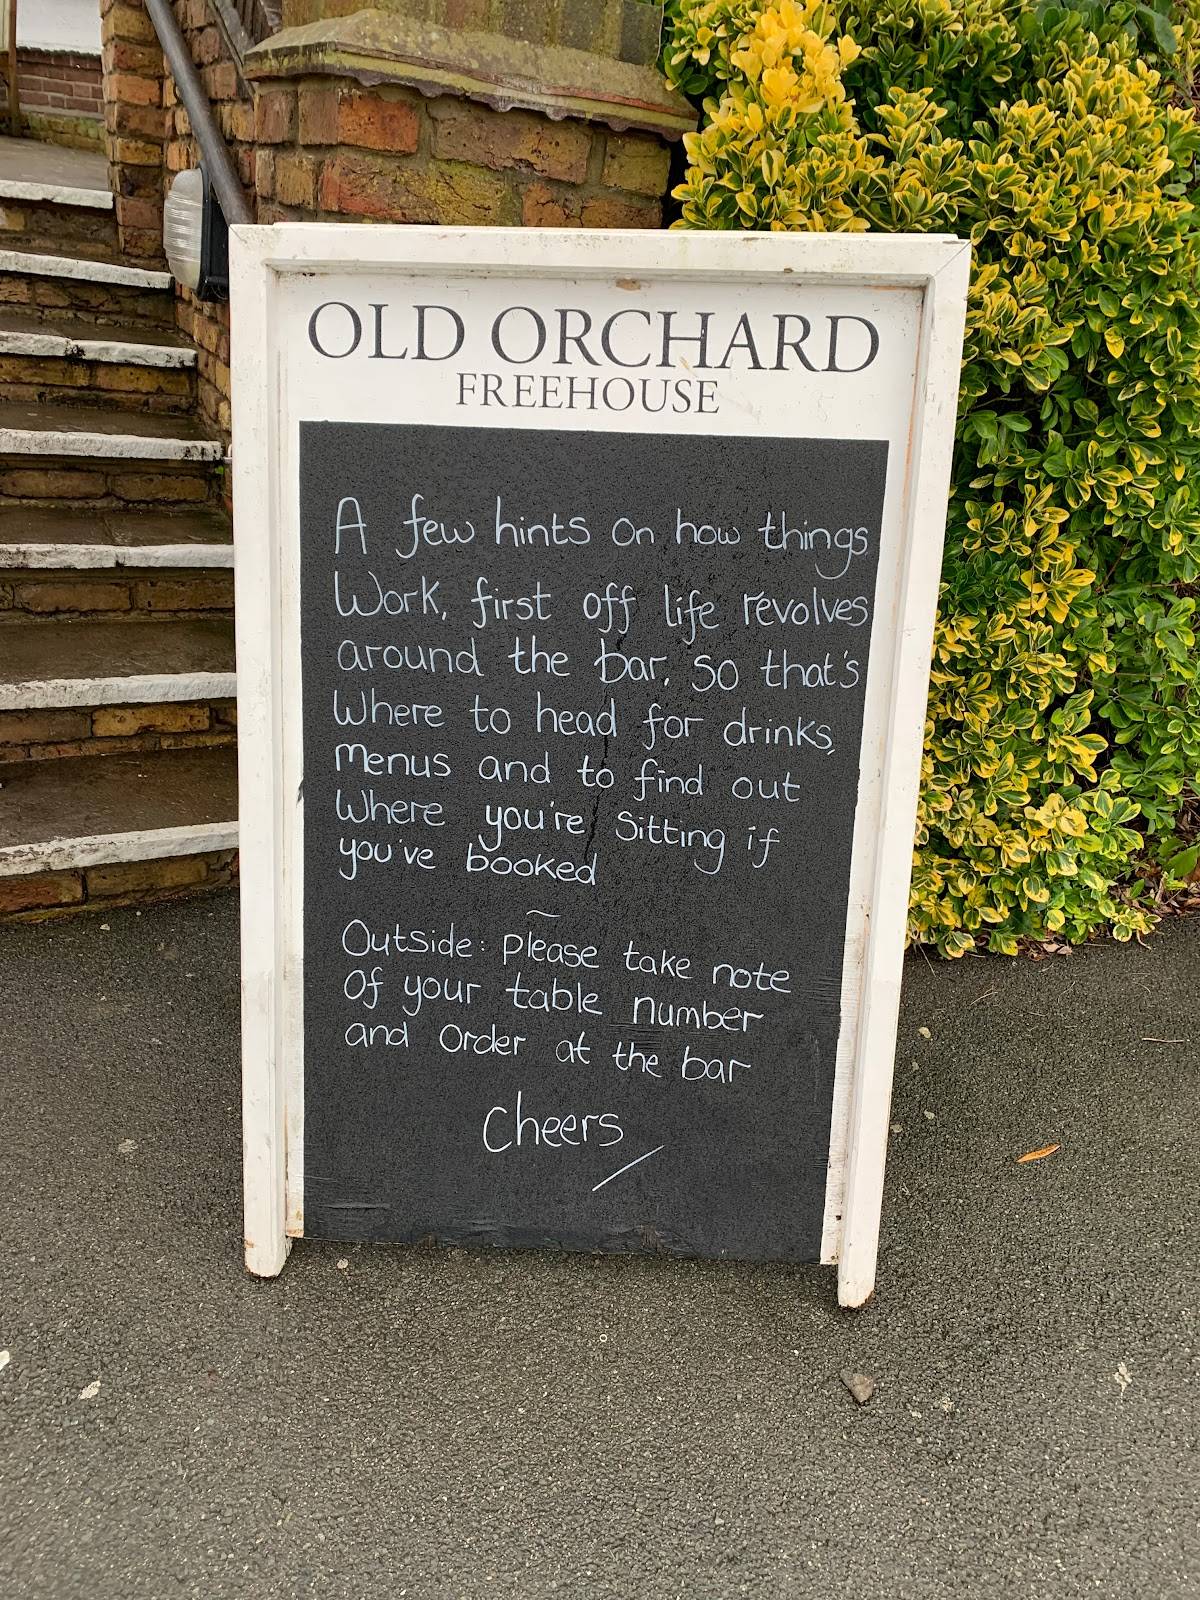 OLD ORCHARD
FREEHOUSE
A few hints on how things
Work, first off life revolves
around the bar, so that's
Where to head for drinks,
menus and to find out
Where you're sitting if
you've booked
~
Outside: please take note
of your table number
and order at the bar
Cheers